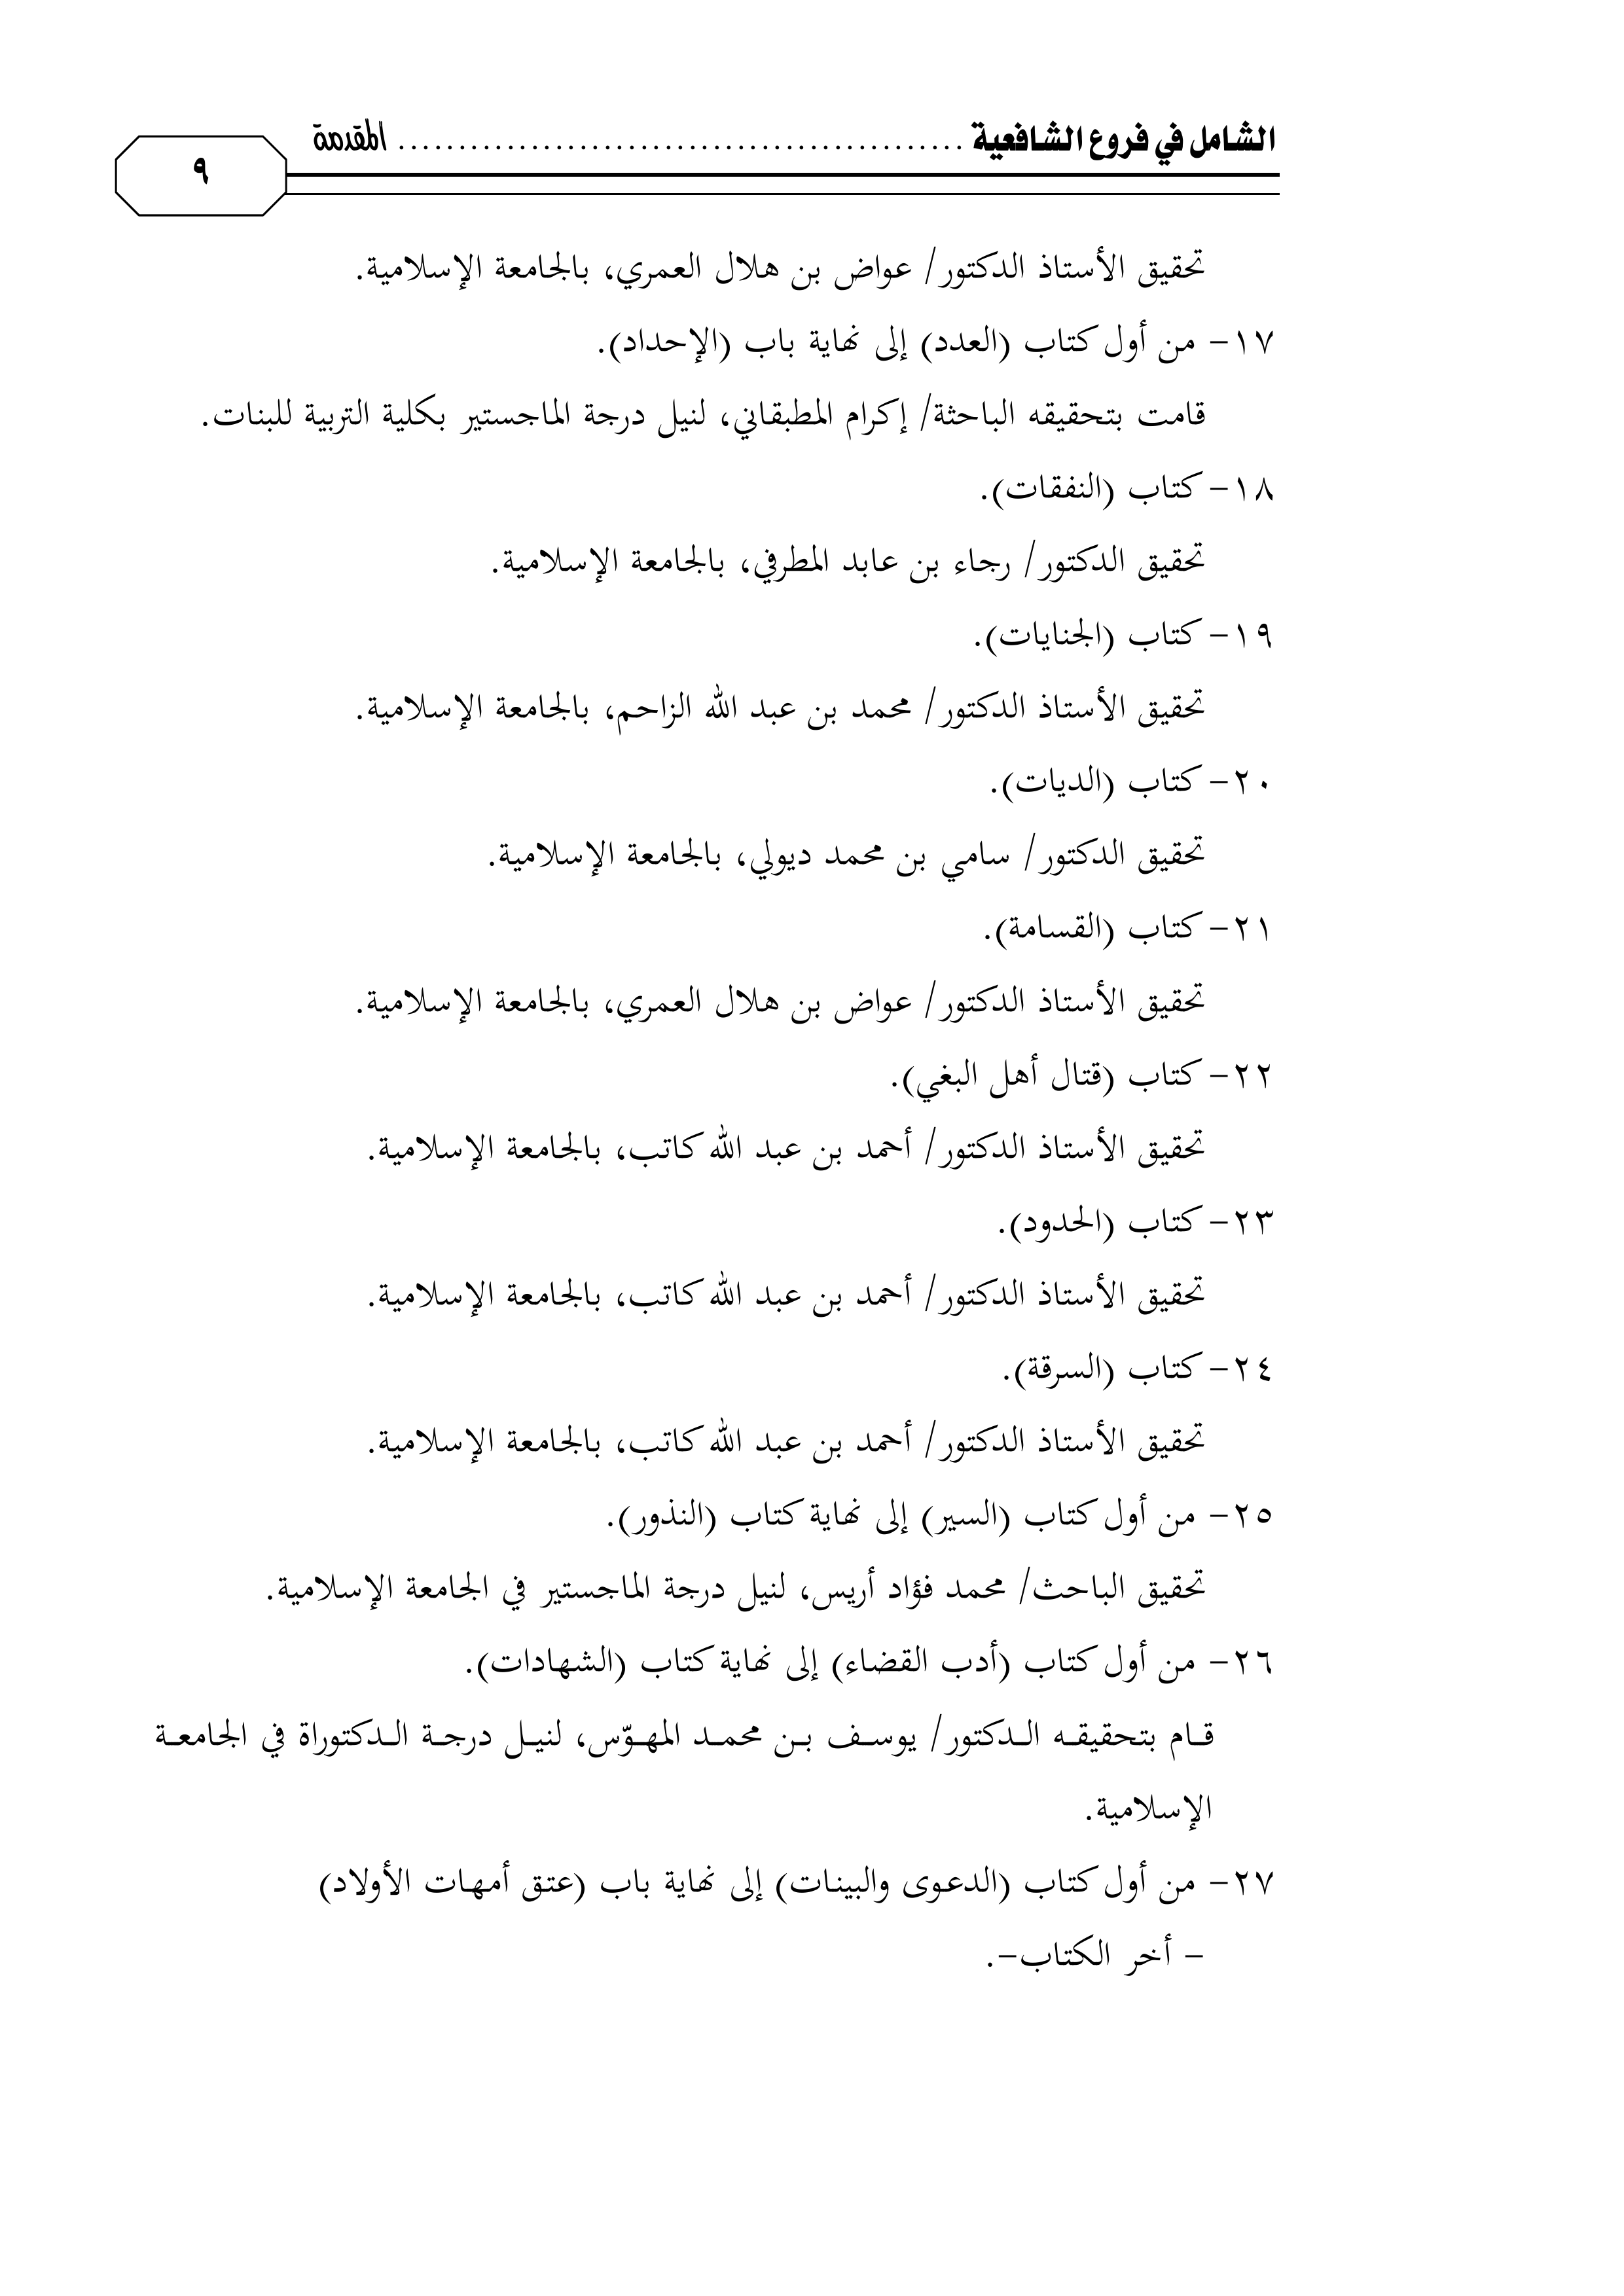 الشامل في فروع الشافعية ............................................... المقدمة
٩
تحقيق الأستاذ الدكتور/ عواض بن هلال العمري، بالجامعة الإسلامية.
١٧- من أول كتاب (العدد) إلى نهاية باب (الإحداد).
قامت بتحقيقه الباحثة/ إكرام المطبقاني، لنيل درجة الماجستير بكلية التربية للبنات.
١٨- كتاب (النفقات).
تحقيق الدكتور/ رجاء بن عابد المطرفي، بالجامعة الإسلامية.
١٩- كتاب (الجنايات).
تحقيق الأستاذ الدكتور/ محمد بن عبد الله الزاحم، بالجامعة الإسلامية.
٢٠- كتاب (الديات).
تحقيق الدكتور/ سامي بن محمد ديولي، بالجامعة الإسلامية.
٢١- كتاب (القسامة).
تحقيق الأستاذ الدكتور/ عواض بن هلال العمري، بالجامعة الإسلامية.
٢٢- كتاب (قتال أهل البغي).
تحقيق الأستاذ الدكتور/ أحمد بن عبد الله كاتب، بالجامعة الإسلامية.
٢٣- كتاب (الحدود).
تحقيق الأستاذ الدكتور/ أحمد بن عبد الله كاتب، بالجامعة الإسلامية.
٢٤- كتاب (السرقة).
تحقيق الأستاذ الدكتور/ أحمد بن عبد الله كاتب، بالجامعة الإسلامية.
٢٥- من أول كتاب (السير) إلى نهاية كتاب (النذور).
تحقيق الباحث/ محمد فؤاد أريس، لنيل درجة الماجستير في الجامعة الإسلامية.
٢٦- من أول كتاب (أدب القضاء) إلى نهاية كتاب (الشهادات).
قام بتحقيقه الدكتور/ يوسف بن محمد المهوّس، لنيل درجة الدكتوراة في الجامعة
الإسلامية.
٢٧- من أول كتاب (الدعوى والبينات) إلى نهاية باب (عتق أمهات الأولاد)
- أخر الكتاب-.